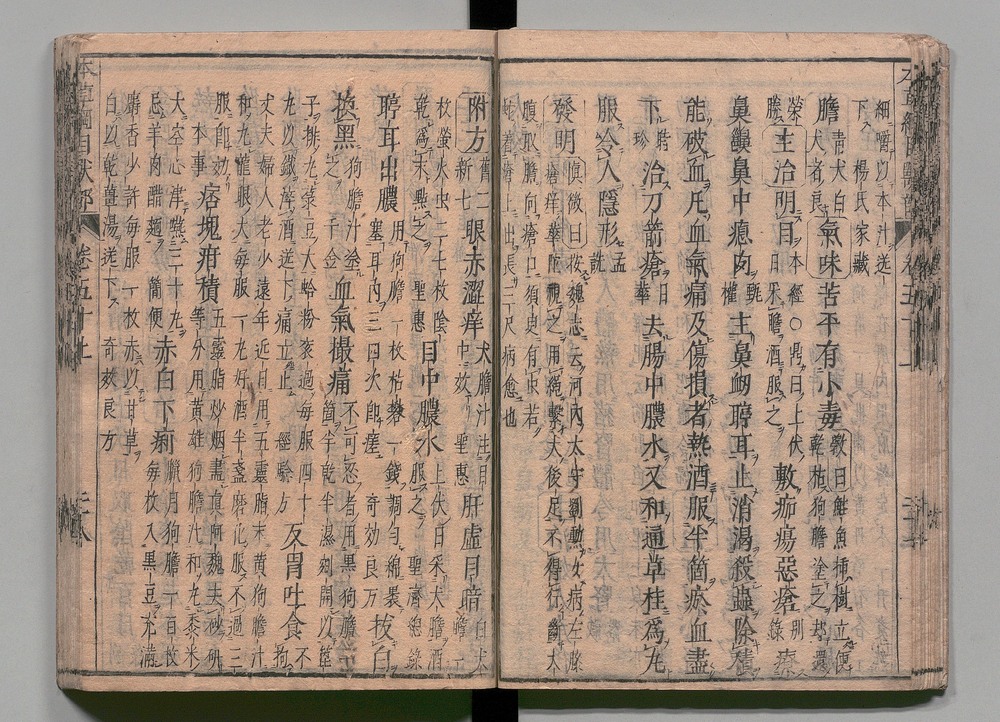 細嚼以本汁送
下 楊氏家藏
膽 青犬白犬者良 氣味苦平有小毒 敩曰鮭魚插樹立便乾枯狗膽塗之却還
榮盛 主治明目 本經○鼎曰上伏日采膽酒服之 敷痂瘍惡瘡 別錄 療
鼻齆鼻中瘜肉 甄權 主鼻衄聤耳止消渴殺蟲除積
能破血凡血氣痛及傷損者熱酒服半箇瘀血盡
下 時珍 治刀箭瘡 日華 去腸中膿水又和通草桂為丸
服令人隱形 孟詵
發明 慎微曰按魏志云河內太守劉勳女病左膝
瘡痒華佗視之用繩繫犬後足不得行斷犬
腹取膽向瘡口須臾有虫若
蛇着瘡上出長三尺病愈也
附方 舊二新七 眼赤澀痒 犬膽汁注目中效 聖惠 肝虛目暗 白犬膽一
枚螢火虫二七枚陰
乾為末點之 聖惠 目中膿水 上伏日采犬膽酒服之 聖濟總錄
聤耳出膿 用狗膽一枚枯礬一錢調勻綿裹塞耳內三四次即瘥 奇効良方 拔白
換黑 狗膽汁塗之 千金 血氣撮痛 不可忍者用黑狗膽一箇半乾半濕剜開以篦
子排丸菉豆大蛤粉衮過每服四十
丸以鐵淬酒送下痛立止 經驗方 反胃吐食 不拘
丈夫婦人老少遠年近日用五靈脂末黄狗膽汁
和丸龍眼大每服一丸好酒半盞磨化服不過三
服即効 本事 痞塊疳積 五靈脂炒烟盡真阿魏去砂研等分用黄雄狗膽汁和丸黍米
大空心津嚥三十丸
忌羊肉醋麫 簡便 赤白下痢 臘月狗膽一百枚每枚入黑豆充滿
麝香少許每服一枚赤以甘草
白以乾薑湯送下 奇效良方